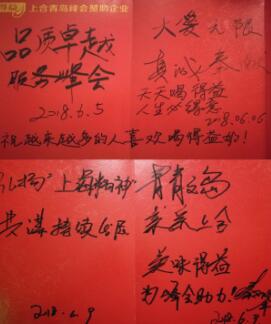 上合青岛峰会赞助企业
品质卓越
服务峰会
2018.6.5
大爱无限
真诚
天天喝得益
人生必得意
2018.06.06
祝越来越多的人喜欢喝得益的!
弘扬"上海精神"
共谋持续发展
2018.6.9
青青之岛
亲亲上合
美味得益
为峰会助力!